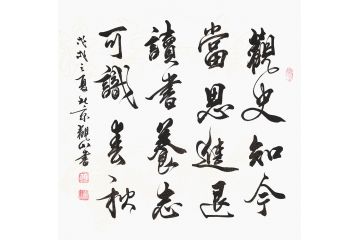 觀史知今
當思進退
讀書養志
可識春秋
戊戌之夏北京觀山書